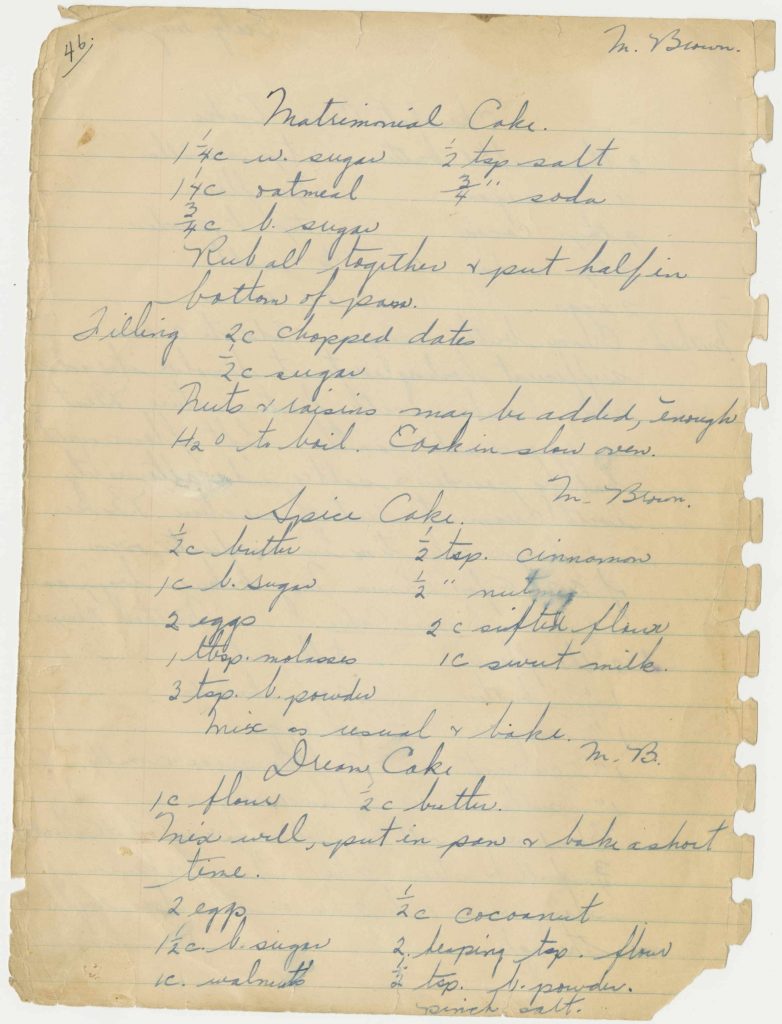 46.
M. Brown.
Matrimonial Cake.
1 1/4c w. sugar 1/2 tsp salt
1 1/4c oatmeal 3/4 " soda
3/4c b. sugar
Rub all together & put half in
bottom of pan.
Filling 2c chopped dates
1/2c sugar
Nuts & raisins may be added, enough
H2O to boil. Cook in slow oven.
M. Brown.
Spice Cake.
1/2c butter 1/2 tsp. cinnamon
1c b. sugar 1/2 " nutmeg
2 eggs 2c sifted flour
1 tbsp. molasses 1c sweet milk.
3 tsp. b. powder
Mix as usual & bake.
M. B.
Dream Cake
1c flour 1/2c butter.
Mix well, put in pan & bake a short
time.
2 eggs 1/2c cocoanut
1 1/2c. b. sugar 2 heaping tsp. flour
1c. walnuts 1/2 tsp. b. powder.
pinch salt.